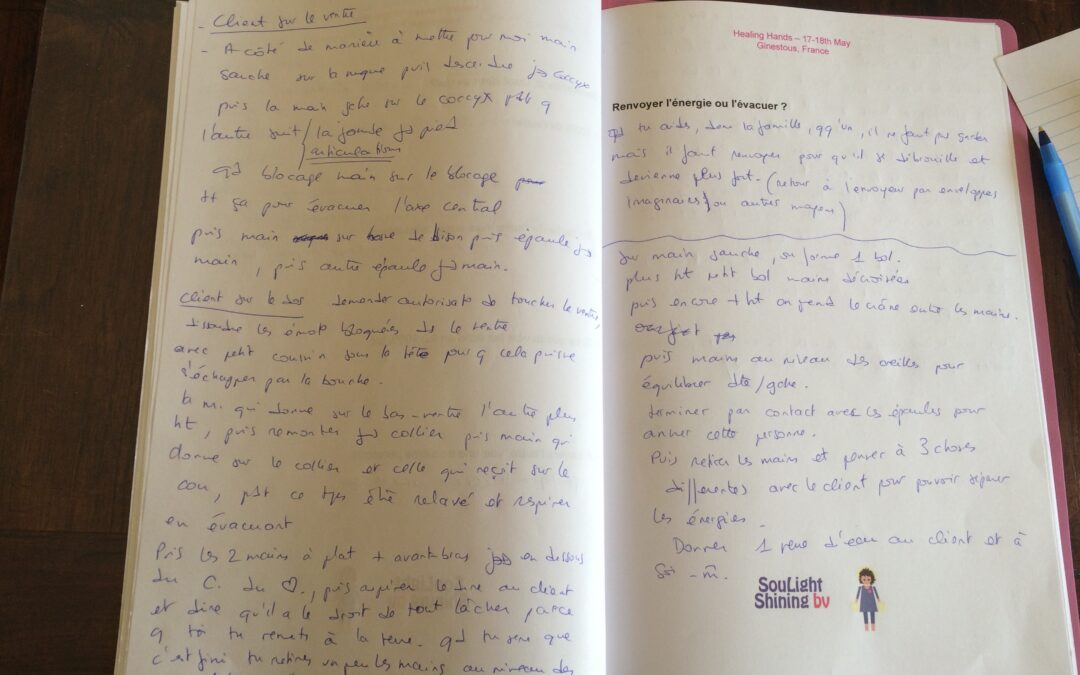 - Client sur le ventre
- A côté de manière à mettre pour moi main
gauche sur la nuque puis descendre jsq coccyx
puis la main gche sur le coccyx pdt q
l'autre suit / la jambe jsq pied
articulations
qd blocage main sur le blocage
tt ça pour évacuer l'axe central
puis main sur de bison puis épaule jsq
main, puis autre épaule jsq main.
Client sur le dos demander autorisato de toucher le ventre,
dissoudre les émoto bloquées ds le ventre
avec petit coussin sous la tête pour q cela puisse
s'échapper par la bouche.
la m. qui donne sur le bas-ventre l'autre plus
ht, puis remonter jsq collier puis main qui
donne sur le collier et celle qui reçoit sur le
cou, pdt ce tps être relaxé et respirer
en évacuant
Puis les 2 mains à plat + avant-bras en dessous
du C. du ♡., puis le dire au client
et dire qu'il a le droit de tout lâcher parce
q toi tu remets à la terre. qd tu sens que
c'est fini tu retires un peu les mains au niveau des
Healing Hands – 17-18th May
Ginestous, France
Renvoyer l'énergie ou l'évacuer ?
qd tu aides, dans la famille, qq'un, il ne faut pas garder
mais il faut renvoyer pour qu'il se débrouille et
devienne plus fort. (retour à l'envoyeur par enveloppes
imaginaires ou autres moyens)
sur main gauche, on forme 1 bol.
plus ht petit bol mains décroisées
puis encore + ht on prend le crâne entre les mains.
puis mains au niveau des oreilles pour
équilibrer dte/gche.
terminer par contact avec les épaules pour
ancrer cette personne.
Puis retirer les mains et penser à 3 choses
différentes avec le client pour pouvoir séparer
les énergies.
Donner 1 verre d'eau au client et à
soi-m̂.
SouLight
Shining bv